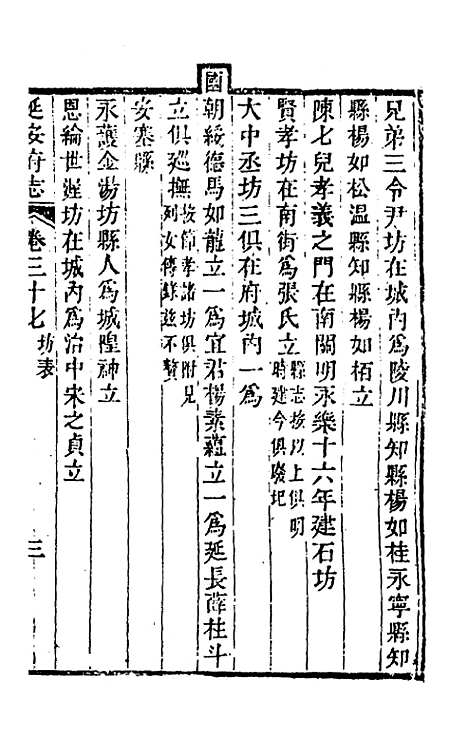 兄弟三令尹坊在城內為陵川縣知縣楊如桂永寧縣知
縣楊如松溫縣知縣楊如栢立
陳七兒孝義之門在南關明永樂十六年建石坊
賢孝坊在南街為張氏立縣志按以上俱明
時建今俱廢圮
大中丞坊三俱在府城內一為
國
朝綏德馬如龍立一為宜君楊素蘊立一為延長薛柱斗
立俱巡撫按節孝諸坊俱附見
列女傳錄茲不贅
安塞縣
永護金湯坊縣人為城隍神立
恩綸世渥坊在城內為治中宋之貞立
延安府志 卷三十七 坊表 三